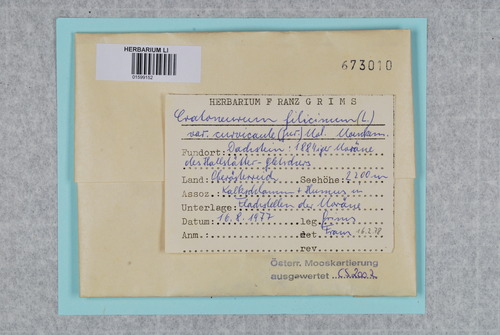 HERBARIUM LI
01599152
673010
HERBARIUM FRANZ GRIMS
Cratoneurum filicinum (L.)
var. curvicaule (Jur.) Mönkem.
Fundort: Dachstein: 1884iger Moräne
des Hallstätter-gletschers
Land: Oberösterreich Seehöhe: 2 200 m
Assoz. Kalkschlamm + Humus in
Unterlage: Flachstellen der Moräne
Datum: 16. 8. 1977 leg. Grims
Anm.: det. Grims 16.2.78
rev.
Österr. Mooskartierung
ausgewertet CS2002